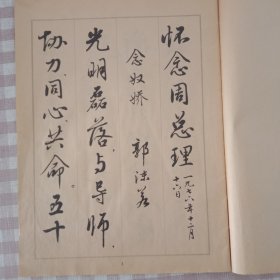 怀念周总理 一九七六年十二月十六日
念奴娇 郭沫若
光明磊落,与导师,
协力、同心、共命。五十